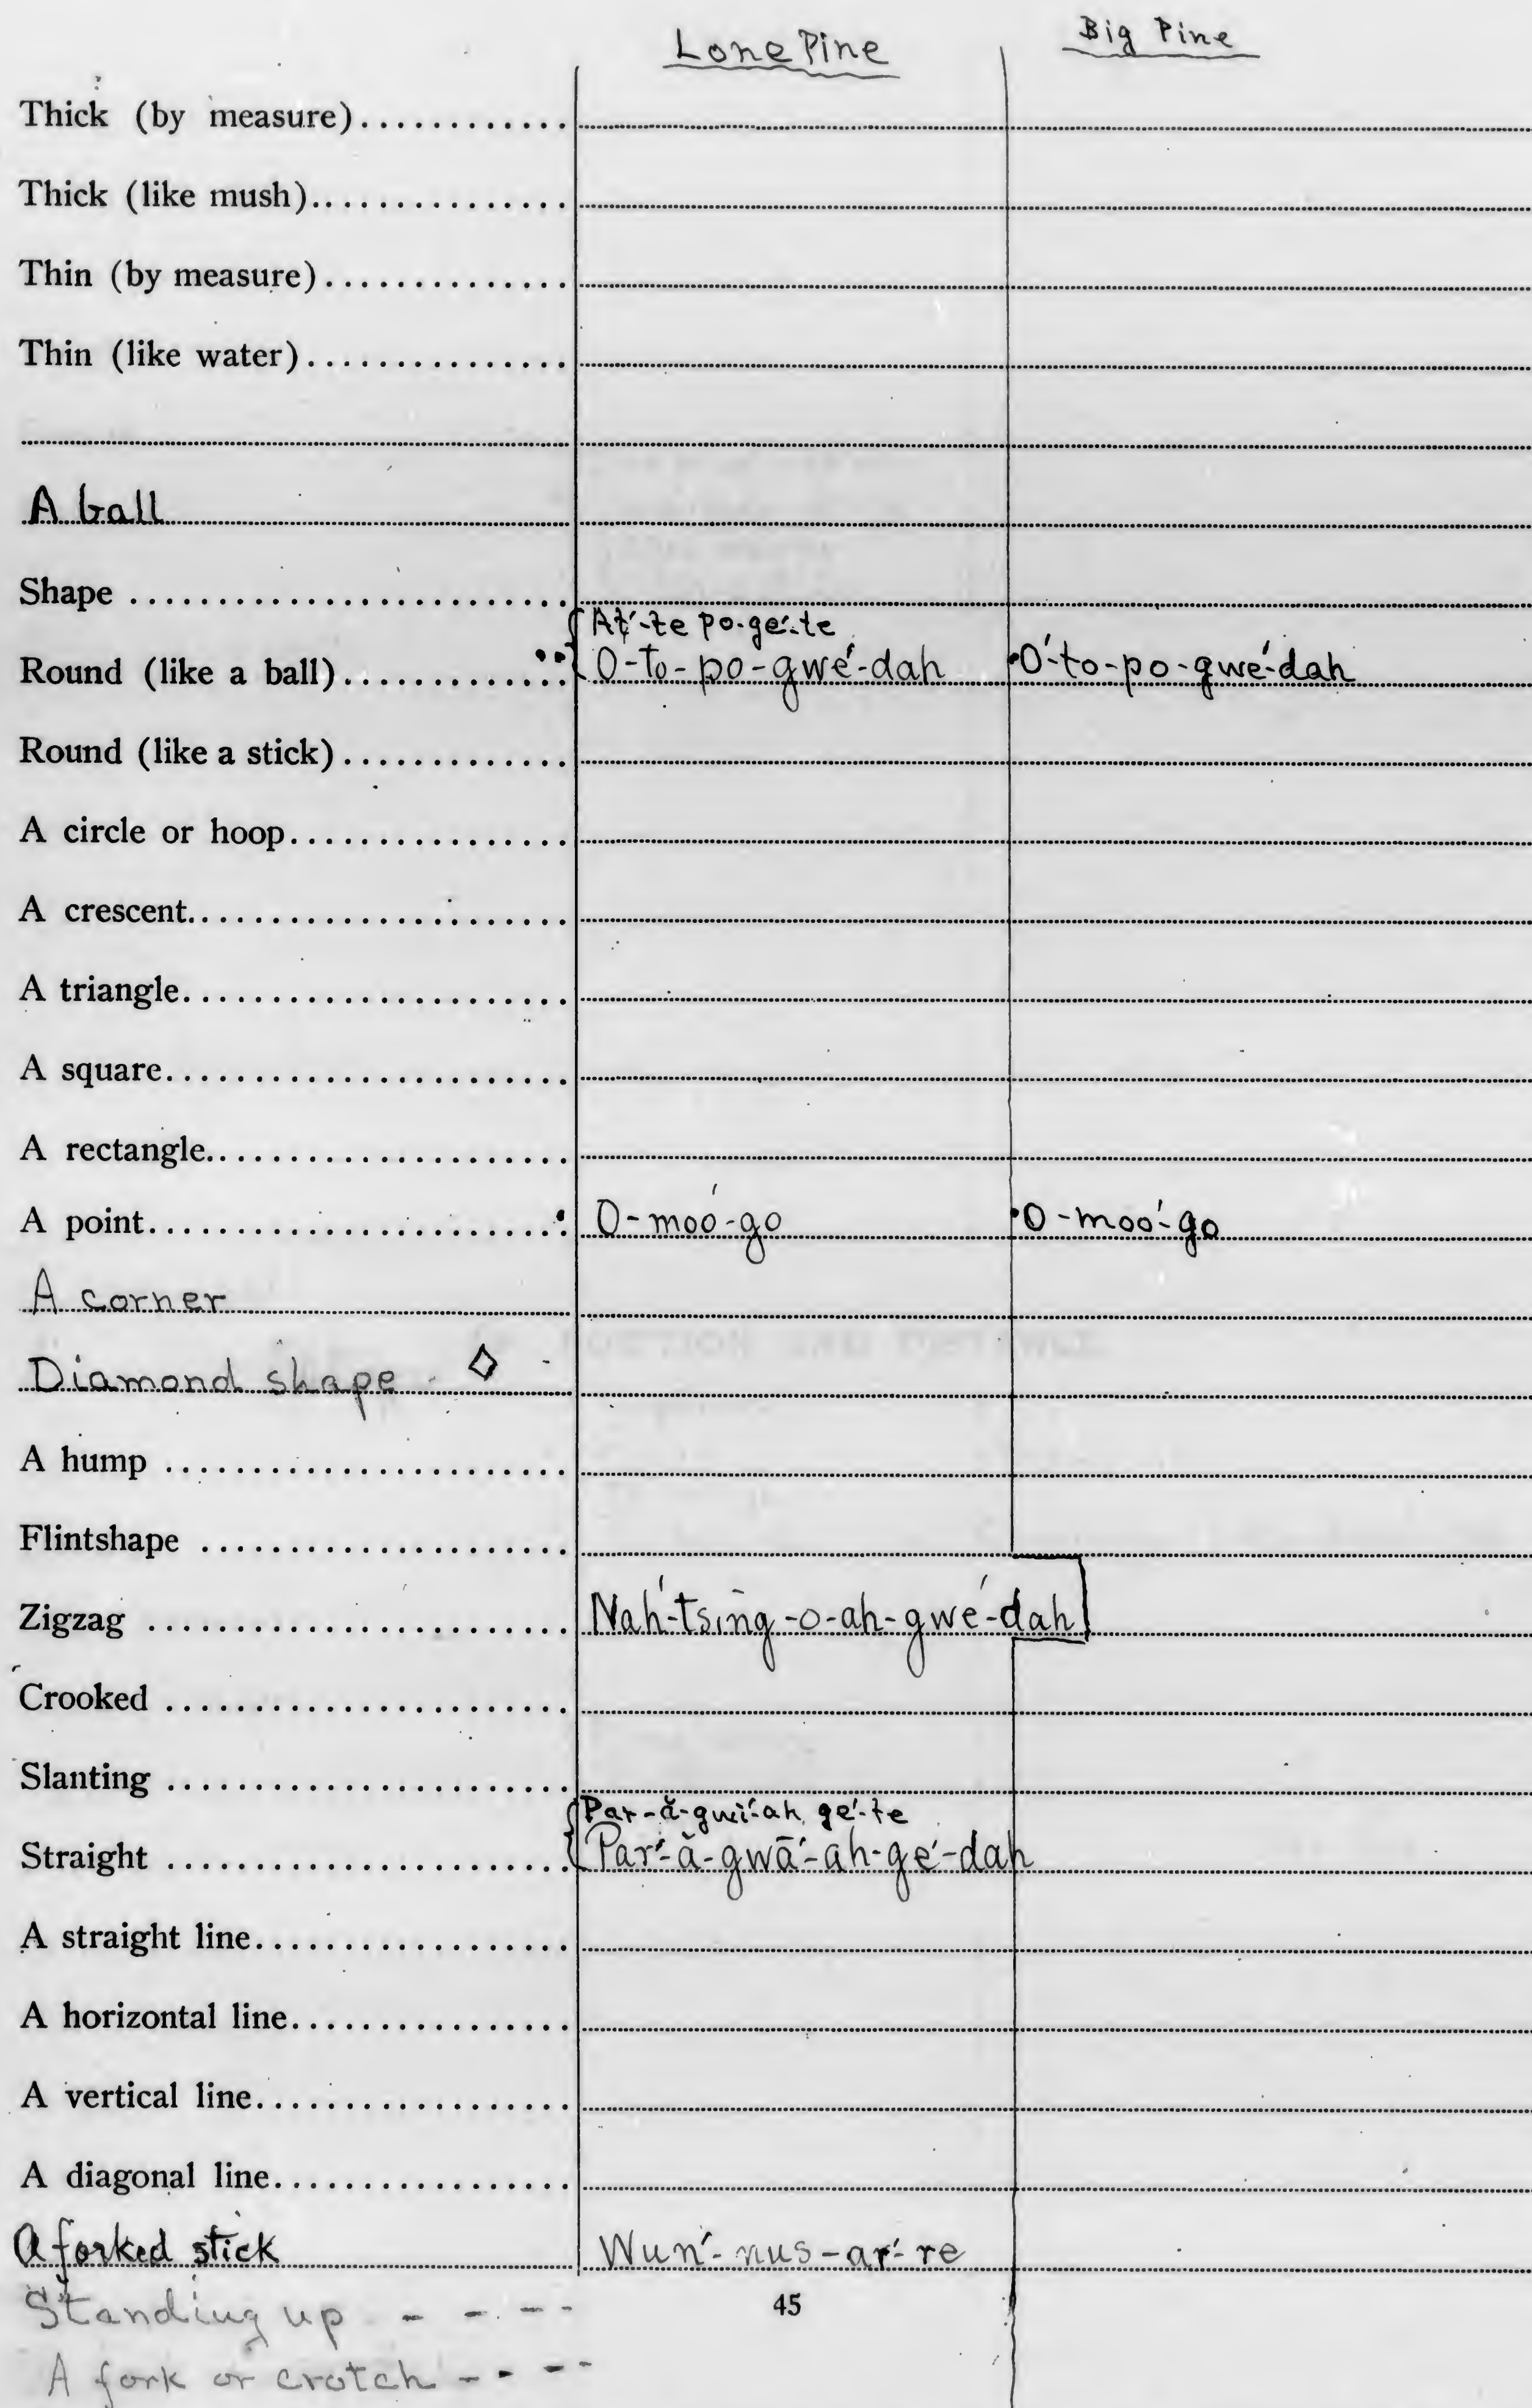 Lone Pine Big Pine
Thick (by measure)............
Thick (like mush)...............
Thin (by measure)..............
Thin (like water)...............
A ball
Shape ........................
At́-te po-gé-te
Round (like a ball)............. O-to-po-gwé-dah •Ó-to-po-gwé-dah
Round (like a stick).............
A circle or hoop................
A crescent......................
A triangle......................
A square.......................
A rectangle.....................
A point....................... O-moó-go •O-moó-go
A corner
Diamond shape ◇
A hump .......................
Flintshape .....................
Zigzag ........................ Nah́-tsing-o-ah-gwé-dah
Crooked .......................
Slanting .......................
Par-ă-gwí-ah gé-te
Straight ....................... Paŕ-ă-gwā́-ah-gé-dah
A straight line..................
A horizontal line................
A vertical line..................
A diagonal line.................
A forked stick Wuń-nus-aŕ-re
Standing up - - - -
45
A fork or crotch - - - -